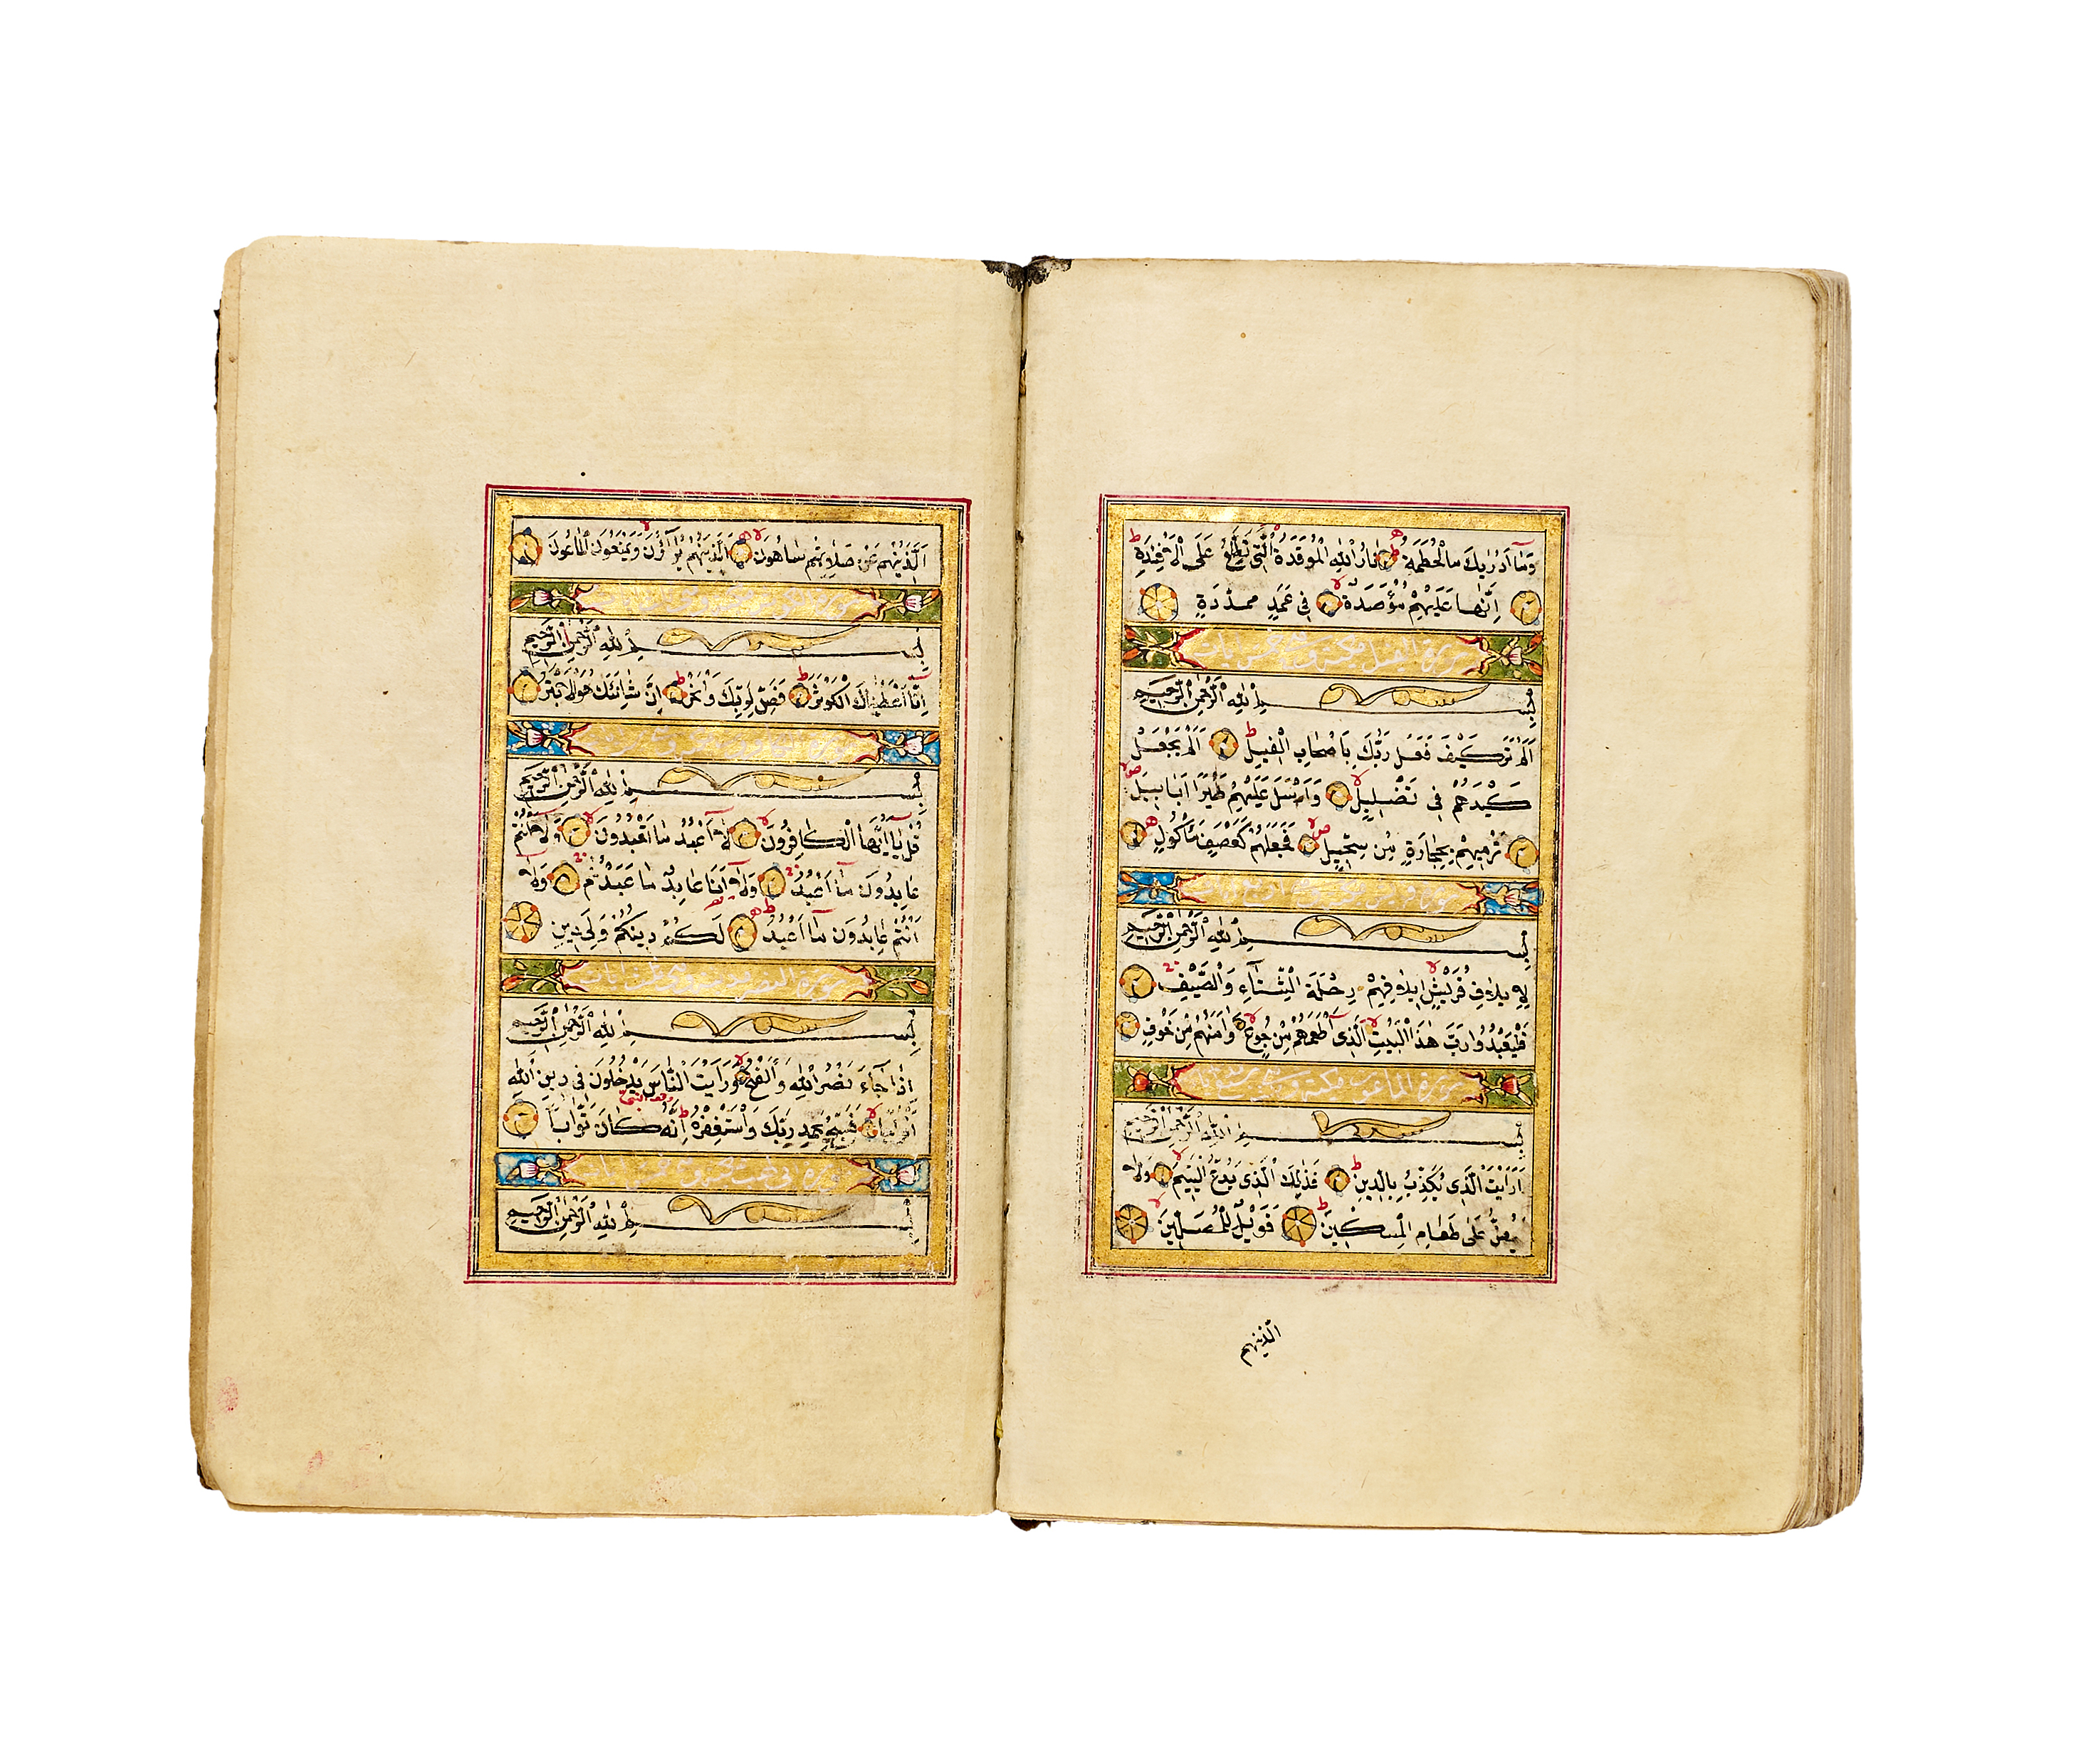 وَمَآ اَدْرٰيكَ مَا الْحُطَمَةُ نَارُ اللّٰهِ الْمُوقَدَةُ الَّتِى تَطَّلِعُ عَلَى الْاَفْئِدَةِ
اِنَّهَا عَلَيْهِمْ مُؤْصَدَةٌ فِى عَمَدٍ مُمَدَّدَةٍ
سورة الفيل مكية وهى خمس ايات
بِسْمِ اللّٰهِ الرَّحْمٰنِ الرَّحِيمِ
اَلَمْ تَرَ كَيْفَ فَعَلَ رَبُّكَ بِاَصْحَابِ الْفِيلِ اَلَمْ يَجْعَلْ
كَيْدَهُمْ فِى تَضْلِيلٍ وَاَرْسَلَ عَلَيْهِمْ طَيْرًا اَبَابِيلَ
تَرْمِيهِمْ بِحِجَارَةٍ مِنْ سِجِّيلٍ فَجَعَلَهُمْ كَعَصْفٍ مَأْكُولٍ
سورة قريش
بِسْمِ اللّٰهِ الرَّحْمٰنِ الرَّحِيمِ
لِاِيلَافِ قُرَيْشٍ اِيلَافِهِمْ رِحْلَةَ الشِّتَآءِ وَالصَّيْفِ
فَلْيَعْبُدُوا رَبَّ هٰذَا الْبَيْتِ الَّذِى اَطْعَمَهُمْ مِنْ جُوعٍ وَاٰمَنَهُمْ مِنْ خَوْفٍ
سورة الماعون مكية وهى ست ايات
بِسْمِ اللّٰهِ الرَّحْمٰنِ الرَّحِيمِ
اَرَاَيْتَ الَّذِى يُكَذِّبُ بِالدِّينِ فَذٰلِكَ الَّذِى يَدُعُّ الْيَتِيمَ وَلَا
يَحُضُّ عَلٰى طَعَامِ الْمِسْكِينَ فَوَيْلٌ لِلْمُصَلِّينَ
الذينهم
اَلَّذِينَهُمْ عَنْ صَلَاتِهِمْ سَاهُونَ الَّذِينَهُمْ يُرَآؤُنَ وَيَمْنَعُونَ الْمَاعُونَ
سورة الكوثر
بِسْمِ اللّٰهِ الرَّحْمٰنِ الرَّحِيمِ
اِنَّا اَعْطَيْنَاكَ الْكَوْثَرَ فَصَلِّ لِرَبِّكَ وَانْحَرْ اِنَّ شَانِئَكَ هُوَ الْاَبْتَرُ
سورة
بِسْمِ اللّٰهِ الرَّحْمٰنِ الرَّحِيمِ
قُلْ يَآ اَيُّهَا الْكَافِرُونَ لَآ اَعْبُدُ مَا تَعْبُدُونَ وَلَآ اَنْتُمْ
عَابِدُونَ مَآ اَعْبُدُ وَلَآ اَنَا عَابِدٌ مَا عَبَدْتُمْ وَلَآ
اَنْتُمْ عَابِدُونَ مَآ اَعْبُدُ لَكُمْ دِينُكُمْ وَلِىَ دِينِ
سورة النصر وهى ثلث ايات
بِسْمِ اللّٰهِ الرَّحْمٰنِ الرَّحِيمِ
اِذَا جَآءَ نَصْرُ اللّٰهِ وَالْفَتْحُ وَرَاَيْتَ النَّاسَ يَدْخُلُونَ فِى دِينِ اللّٰهِ
اَفْوَاجًا فَسَبِّحْ بِحَمْدِ رَبِّكَ وَاسْتَغْفِرْهُ اِنَّهُ كَانَ تَوَّابًا
سورة
بِسْمِ اللّٰهِ الرَّحْمٰنِ الرَّحِيمِ